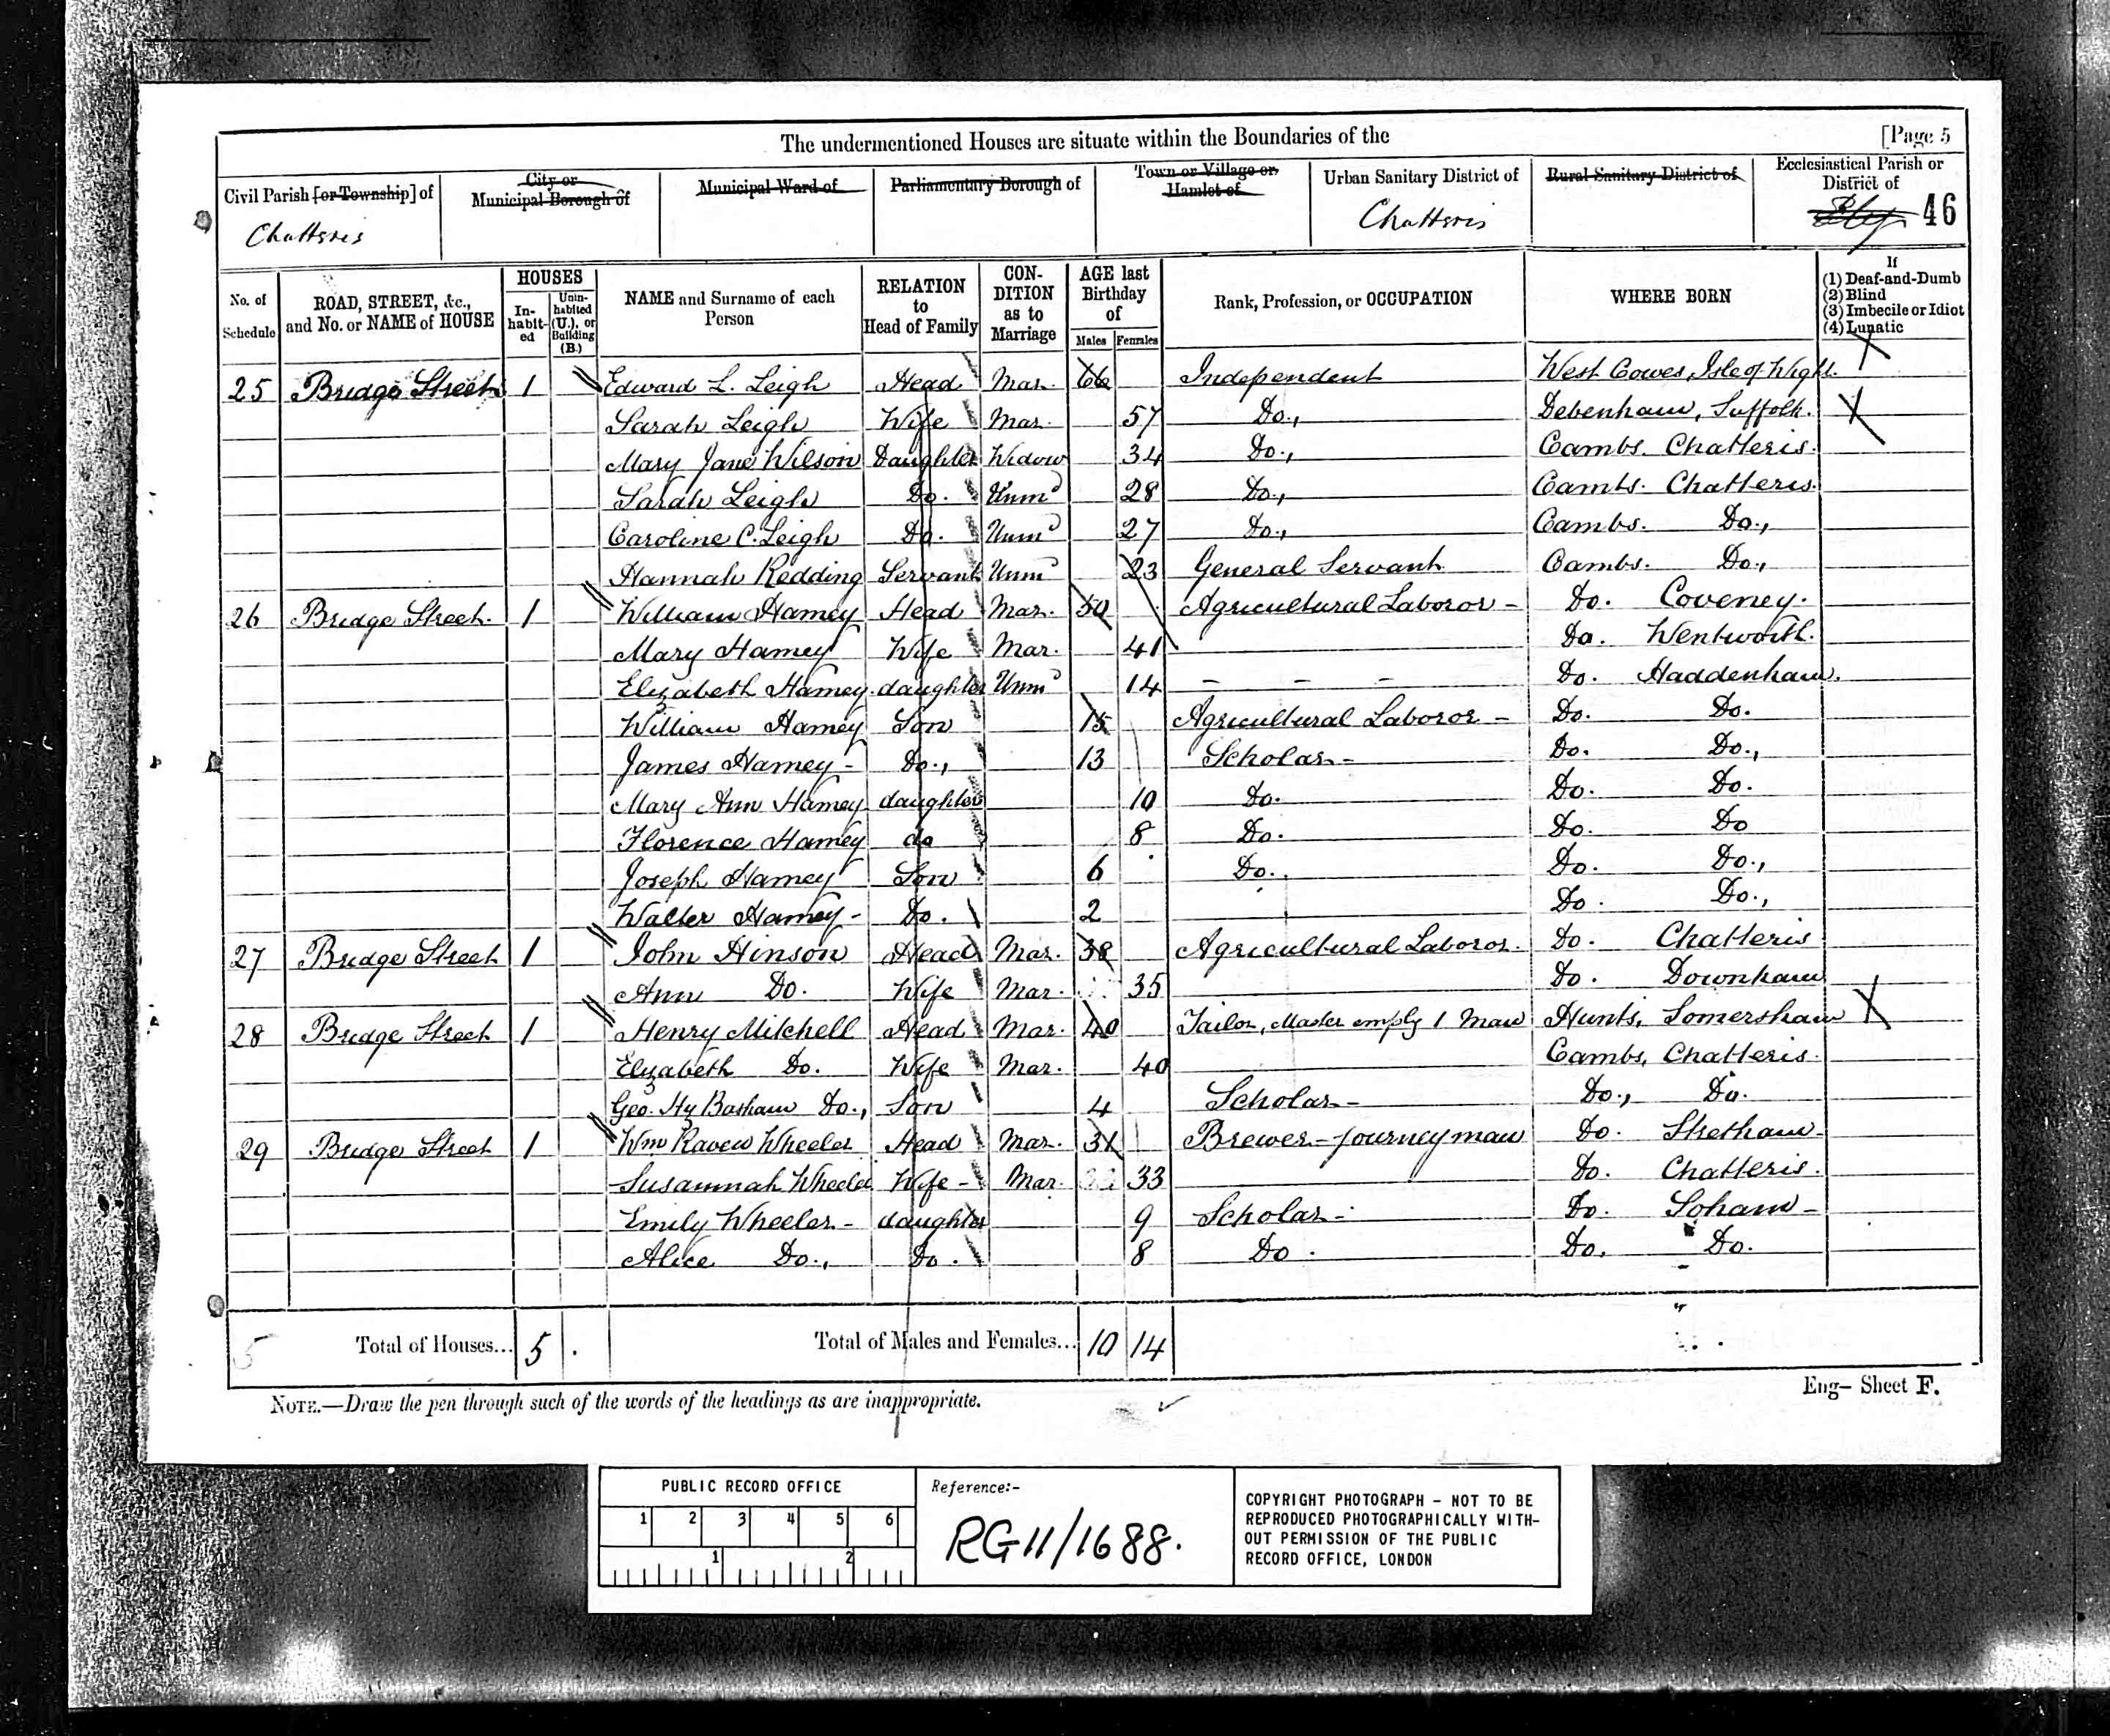 The undermentioned Houses are situate within the Boundaries of the [Page 5
Civil Parish [or Township] of Chatteris
City or Municipal Borough of
Municipal Ward of
Parliamentary Borough of
Town or Village or Hamlet of
Urban Sanitary District of Chatteris
Rural Sanitary District of
Ecclesiastical Parish or District of Ely 46
No. of Schedule
ROAD, STREET, &c., and No. or NAME of HOUSE
HOUSES
In-habit-ed
Unin-habited (U.), or Building (B.)
NAME and Surname of each Person
RELATION to Head of Family
CON-DITION as to Marriage
AGE last Birthday of
Males Females
Rank, Profession, or OCCUPATION
WHERE BORN
If
(1) Deaf-and-Dumb
(2) Blind
(3) Imbecile or Idiot
(4) Lunatic
25 Bridge Street 1 Edward L. Leigh Head Mar. 66 Independent West Cowes, Isle of Wight.
Sarah Leigh Wife Mar. 57 Do., Debenham, Suffolk.
Mary Jane Wilson Daughter Widow 34 Do., Cambs. Chatteris.
Sarah Leigh Do. Unmd 28 Do., Cambs. Chatteris.
Caroline C. Leigh Do. Unmd 27 Do., Cambs. Do.,
Hannah Redding Servant Unmd 23 General Servant Cambs. Do.,
26 Bridge Street. 1 William Hamey Head Mar. 50 Agricultural Laboror - Do. Coveney.
Mary Hamey Wife Mar. 41 Do. Wentworth.
Elizabeth Hamey. daughter Unmd 14 - - - Do. Haddenham.
William Hamey Son 15 Agricultural Laboror - Do. Do.
James Hamey - Do., 13 Scholar - Do. Do.,
Mary Ann Hamey daughter 10 Do. Do. Do.
Florence Hamey do 8 Do. Do. Do
Joseph Hamey Son 6 Do., Do. Do.,
Walter Hamey - Do. 2 Do. Do.,
27 Bridge Street 1 John Hinson Head Mar. 38 Agricultural Laboror. Do. Chatteris
Ann Do. Wife Mar. 35 Do. Downham
28 Bridge Street 1 Henry Mitchell Head Mar. 40 Tailor, Master emplg 1 Man Hunts, Somersham
Elizabeth Do. Wife Mar. 40 Cambs, Chatteris.
Geo. Hy Basham Do., Son 4 Scholar - Do., Do.
29 Bridge Street 1 Wm Raven Wheeler Head Mar. 31 Brewer - journeyman Do. Stretham -
Susannah Wheeler Wife - Mar. 33 Do. Chatteris.
Emily Wheeler - daughter 9 Scholar - Do. Soham -
Alice Do., Do. 8 Do. Do. Do.
5 Total of Houses... 5 Total of Males and Females... 10 14
NOTE.—Draw the pen through such of the words of the headings as are inappropriate.
Eng- Sheet F.
PUBLIC RECORD OFFICE
1 2 3 4 5 6
1 2
Reference:-
RG11/1688.
COPYRIGHT PHOTOGRAPH - NOT TO BE
REPRODUCED PHOTOGRAPHICALLY WITH-
OUT PERMISSION OF THE PUBLIC
RECORD OFFICE, LONDON